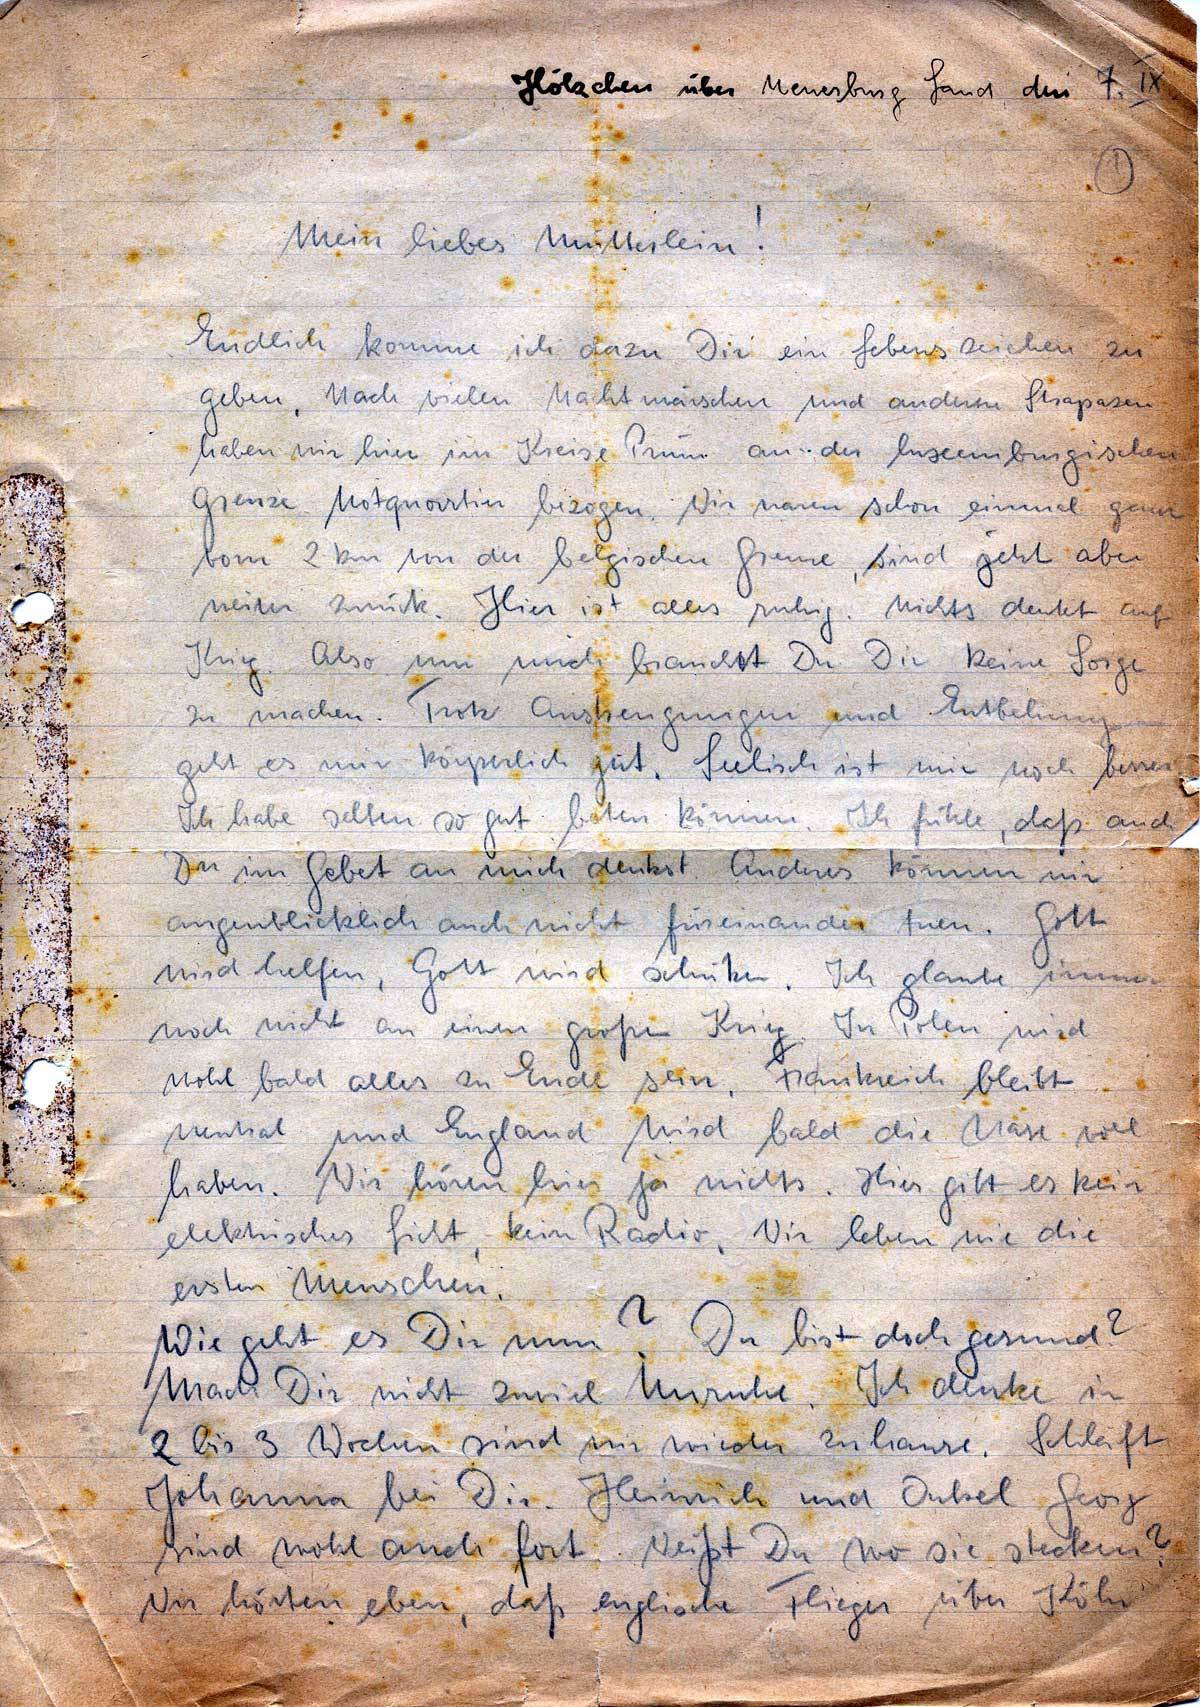 Hölzchen über Neuerburg Land, den 7. IX.
①
Mein liebes Mütterlein!
Endlich komme ich dazu Dir ein Lebenszeichen zu
geben. Nach vielen Nachtmärschen und anderen Strapazen
haben wir hier im Kreise Prüm an der luxemburgischen
Grenze Notquartier bezogen. Wir waren schon einmal ganz
vorn 2 km von der belgischen Grenze, sind jetzt aber
weiter zurück. Hier ist alles ruhig. Nichts denkt auf
Krieg. Also um mich brauchst Du Dir keine Sorge
zu machen. Trotz Anstrengungen und Entbehrung
geht es mir körperlich gut. Seelisch ist mir noch besser
Ich habe selten so gut beten können. Ich fühle, daß auch
Du im Gebet an mich denkst. Anderes können wir
augenblicklich auch nicht füreinander tuen. Gott
wird helfen, Gott wird schützen. Ich glaube immer
noch nicht an einen großen Krieg. In Polen wird
wohl bald alles zu Ende sein. Frankreich bleibt
neutral und England wird bald die Nase voll
haben. Wir hören hier ja nichts. Hier gibt es kein
elektrisches Licht, kein Radio. Wir leben wie die
ersten Menschen.
Wie geht es Dir nun? Du bist doch gesund?
Mach Dir nicht zuviel Unruhe. Ich denke in
2 bis 3 Wochen sind wir wieder zuhause. Schläft
Johanna bei Dir. Heinrich und Onkel Georg
sind wohl auch fort. Weißt Du wo sie stecken?
Wir hörten eben, daß englische Flieger über Köln